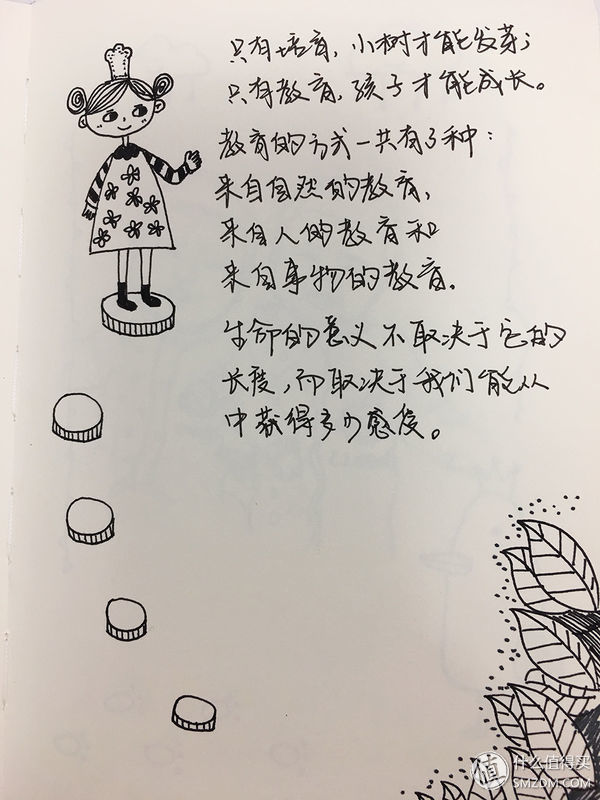 只有培育，小树才能发芽；
只有教育，孩子才能成长。
教育的方式一共有3种：
来自自然的教育，
来自人的教育和
来自事物的教育．
生命的意义不取决于它的
长度，而取决于我们能从
中获得多少感受。
值 什么值得买
SMZDM.COM